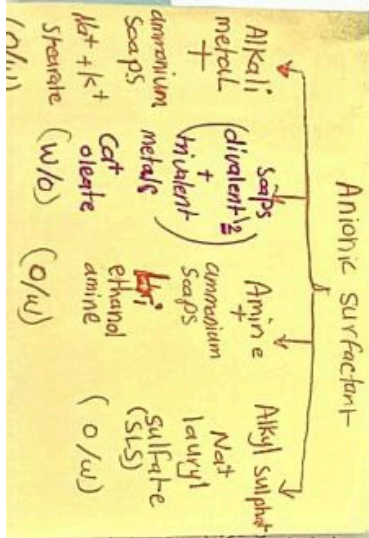 Anionic surfactant
Alkali
metal
+
ammonium
soaps
Na+ + K+
stearate
(O/W)
Soaps
(divalent
+
trivalent)
metals
Ca+
oleate
(W/O)
Amine
+
ammonium
soaps
tri
ethanol
amine
(O/W)
Alkyl sulphat
Na+
lauryl
sulfate
(SLS)
(O/W)